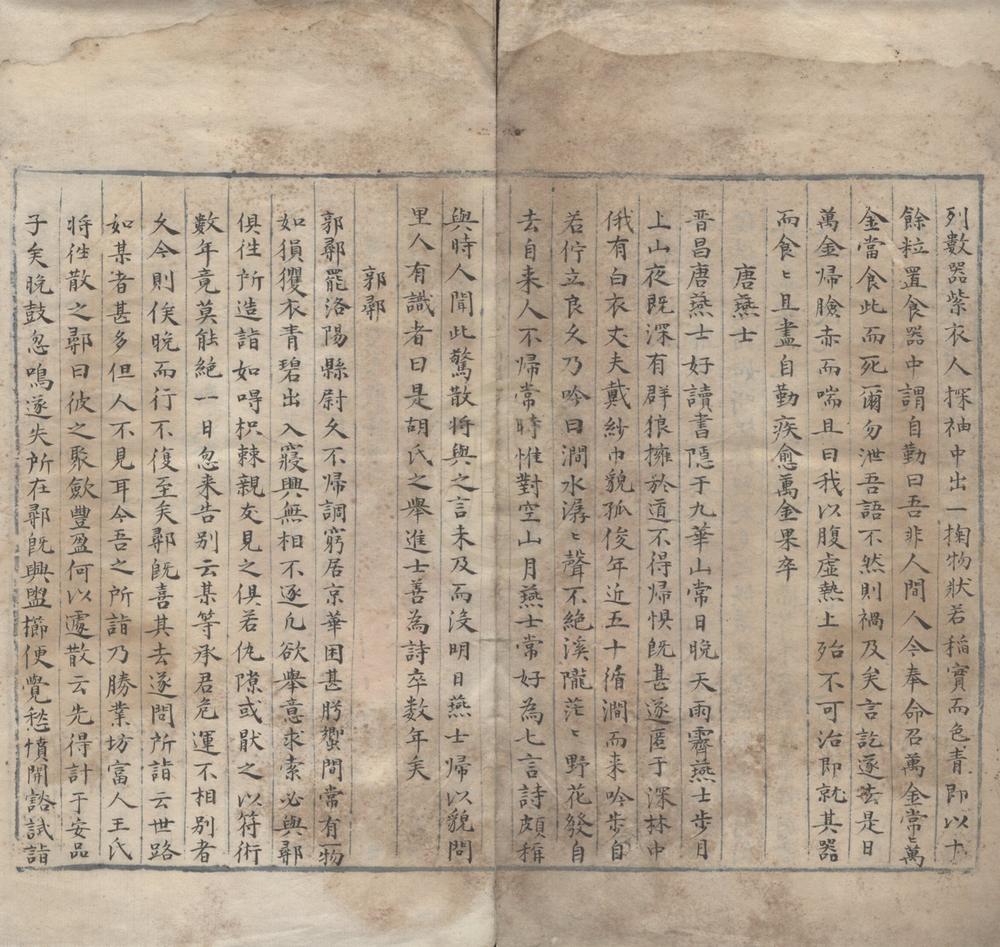 列數器紫衣人探袖中出一掬物狀若稻實而色青即以十
餘粒置食器中謂自勤曰吾非人間人今奉命召萬金常〻萬
金當食此而死爾勿泄吾語不然則禍及矣言訖遂去是日
萬金歸臉赤而喘且曰我以腹虛熱上殆不可治即就其器
而食〻且盡自勤疾愈萬金果卒
唐燕士
晋昌唐燕士好讀書隱于九華山常日晚天雨霽燕士步月
上山夜既深有群狼擁於道不得歸惧既甚遂匿于深林中
俄有白衣丈夫戴紗巾貌孤俊年近五十循澗而来吟步自
若佇立良久乃吟曰澗水潺〻聲不絶溪隴茫〻野花發自
去自来人不歸常時惟對空山月燕士常好為七言詩頗稱
與時人聞此驚散將與之言未及而沒明日燕士歸以貌問
里人有識者曰是胡氏之舉進士善為詩卒數年矣
郭鄩
郭鄩罷洛陽縣尉久不歸調窮居京華困甚肹蠁間常有二物
如猿玃衣青碧出入寢興無相不逐凢欲舉意求索必與鄩
俱徃所造詣如㝵枳棘親友見之俱若仇隙或厭之以符術
數年竟莫能絶一日忽来告别云某等承君危運不相别者
久今則俟晚而行不復至矣鄩既喜其去遂問所詣云世路
如某者甚多但人不見耳今吾之所詣乃勝業坊富人王氏
将徃散之鄩曰彼之聚歛豐盈何以遽散云先得計于安品
子矣晚鼓忽鳴遂失所在鄩既興盥櫛便覺愁憤開豁試詣